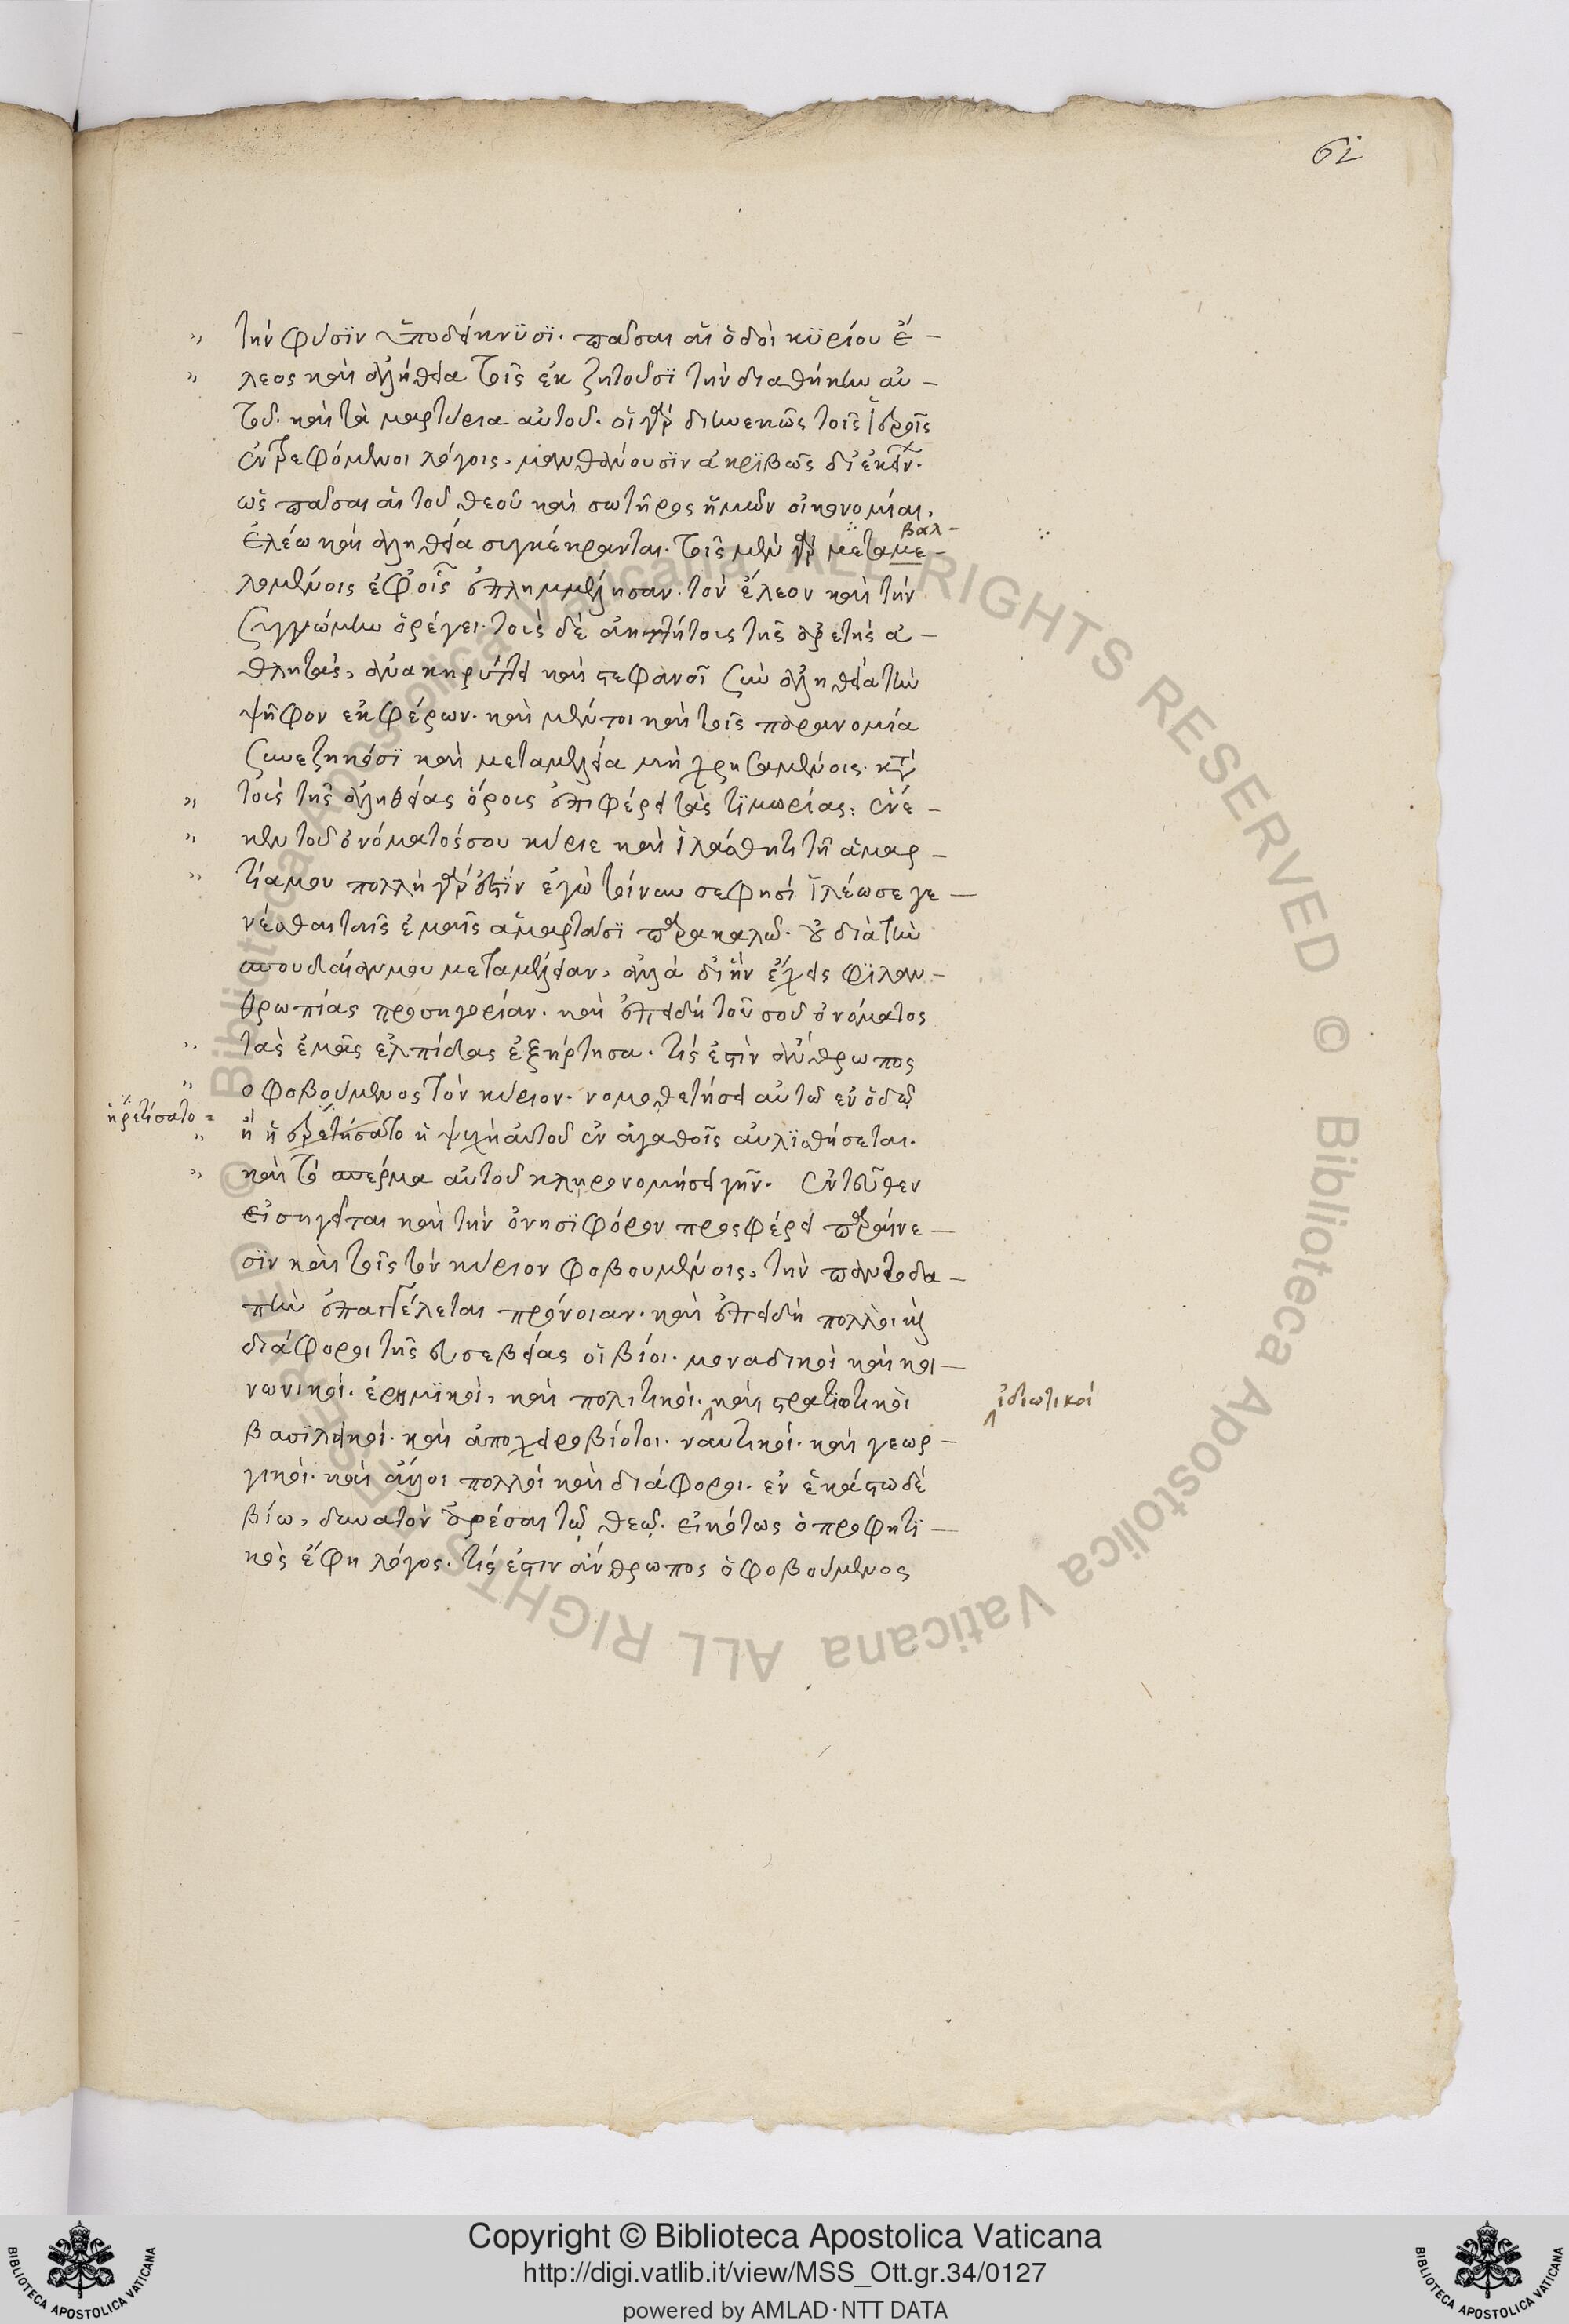 62
τὴν φύσϊν ὑποδείκνϋσϊ. πᾶσαι αἱ ὁδοὶ κϋρίου ἔ-
λεος καὶ ἀλήθεια τοῖς ἐκζητοῦσϊ τὴν διαθήκην αὐ-
τοῦ. καὶ τὰ μαρτύρια αὐτοῦ. οἱ γὰρ διηνεκῶς τοῖς ἱεροῖς
ἐντρεφόμενοι λόγοις, μανθάνουσϊν ἀκρϊβῶς δι' ἐκείνων.
ὡς πᾶσαι αἱ τοῦ θεοῦ καὶ σωτῆρος ἡμῶν οἰκονομίαι,
βαλ-
ἐλέω καὶ ἀληθεία συγκέκρανται. τοῖς μὲν γὰρ μεταμε-
λομένοις ἐφ' οἷς ἐπλημμέλησαν. τὸν ἔλεον καὶ τὴν
συγγνώμην ὀρέγει. τοὺς δὲ ἀηττήτους τῆς ἀρετῆς ἀ-
θλητὰς, ἀνακηρύττει καὶ στεφανοῖ σὺν ἀληθεία τὴν
ψῆφον ἐκφέρων. καὶ μέντοι καὶ τοῖς παρανομία
συνεζηκόσϊ καὶ μεταμελεία μὴ χρησαμένοις. κατὰ
τοὺς τῆς ἀληθείας ὅρους ἐπιφέρει τὰς τϊμωρίας: ἕνε-
κεν τοῦ ὀνόματός σου κύριε καὶ ἱλάσθητι τῆ ἁμαρ-
τία μου πολλὴ γάρ ἐστϊν ἐγὼ τοίνυν σε φησὶ ἵλέω σε γε-
νέσθαι ταῖς ἐμαῖς ἁμαρτίαισϊ παρακαλῶ. οὐ διὰ τὴν
σπουδαίαν μου μεταμέλειαν, ἀλλὰ δι' ἣν ἔχεις φϊλαν-
θρωπίας προσηγορίαν. καὶ ἐπειδὴ τοῦ σοῦ ὀνόματος
τὰς ἐμὰς ἐλπίδας ἐξήρτησα. τίς ἐστὶν ἄνθρωπος
ὁ φοβούμενος τὸν κύριον. νομοθετήσει αὐτῶ ἐν ὁδῶ
ἡρετίσατο
ἧ ἡρετήσατο ἡ ψυχὴ αὐτοῦ ἐν ἀγαθοῖς αὐλϊσθήσεται.
καὶ τὸ σπέρμα αὐτοῦ κληρονομήσει γῆν. ἐντεῦθεν
εἰσηγεῖται καὶ τὴν ὀνησϊφόρον προσφέρει παραίνε-
σϊν καὶ τοῖς τὸν κύριον φοβουμένοις, τὴν παντοδα-
πὴν ἐπαγγέλεται πρόνοιαν. καὶ ἐπειδὴ πολλοὶ καὶ
διάφοροι τῆς εὐσεβείας οἱ βίοι. μοναδικοὶ καὶ κοι-
νωνικοί. ἐρημϊκοὶ, καὶ πολιτικοί. καὶ στρατϊωτικοὶ
ἰδιωτικοί
βασϊλεικοί. καὶ ἀποχειροβίοτοι. ναυτικοί. καὶ γεωρ-
γικοί. καὶ ἄλλοι πολλοὶ καὶ διάφοροι. ἐν ἑκάστω δὲ
βίω, δυνατὸν ἀρέσαι τῶ θεῶ. εἰκότως ὁ προφητϊ-
κὸς ἔφη λόγος. τίς ἐστιν ἄνθρωπος ὁ φοβούμενος
© Biblioteca Apostolica Vaticana ALL RIGHTS RESERVED © Biblioteca Apostolica Vaticana ALL RIGHTS RESERVED
Copyright © Biblioteca Apostolica Vaticana
http://digi.vatlib.it/view/MSS_Ott.gr.34/0127
powered by AMLAD·NTT DATA
BIBLIOTECA APOSTOLICA VATICANA
BIBLIOTECA APOSTOLICA VATICANA